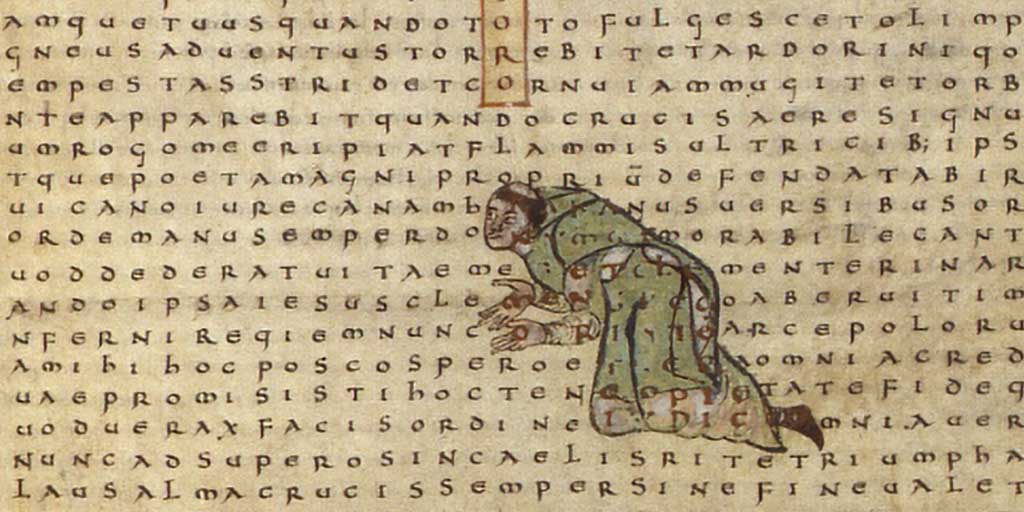 AMQUETUUSQUANDOTOTOFULGESCETOLIMP
GNEUSADUENTUSTORREBITETARDORINIQO
EMPESTASSTRIDETCORNUIAMMUGITETORB
NTEAPPAREBITQUANDOCRUCISAERESIGNU
UMROGOMEERIPIATFLAMMISULTRICIB;IPS
TQUEPOETAMAGNIPROPRIŪDEFENDATABIR
UICANOIURECANAMB NUSUERSIBUSOR
ORDEMANUSEMPERDO MORABILECANT
UODDEDERATUITAEME ET MENTERINAR
ANDOIPSAIESUSCLE COABERUITIM
NFERNIREQIEMNUNC ARCEPOLORU
AMIHIHOCPOSCOSPEROE AOMNIACRED
UAEPROMISISTIHOCTENEOPIETATEFIDEQ
UODUERAXFACISORDINE IUDIC OMNIAUER
NUNCADSUPEROSINCAELISRITETRIUMPHA
LAUSALMACRUCISSEMPERSINEFINEUALET